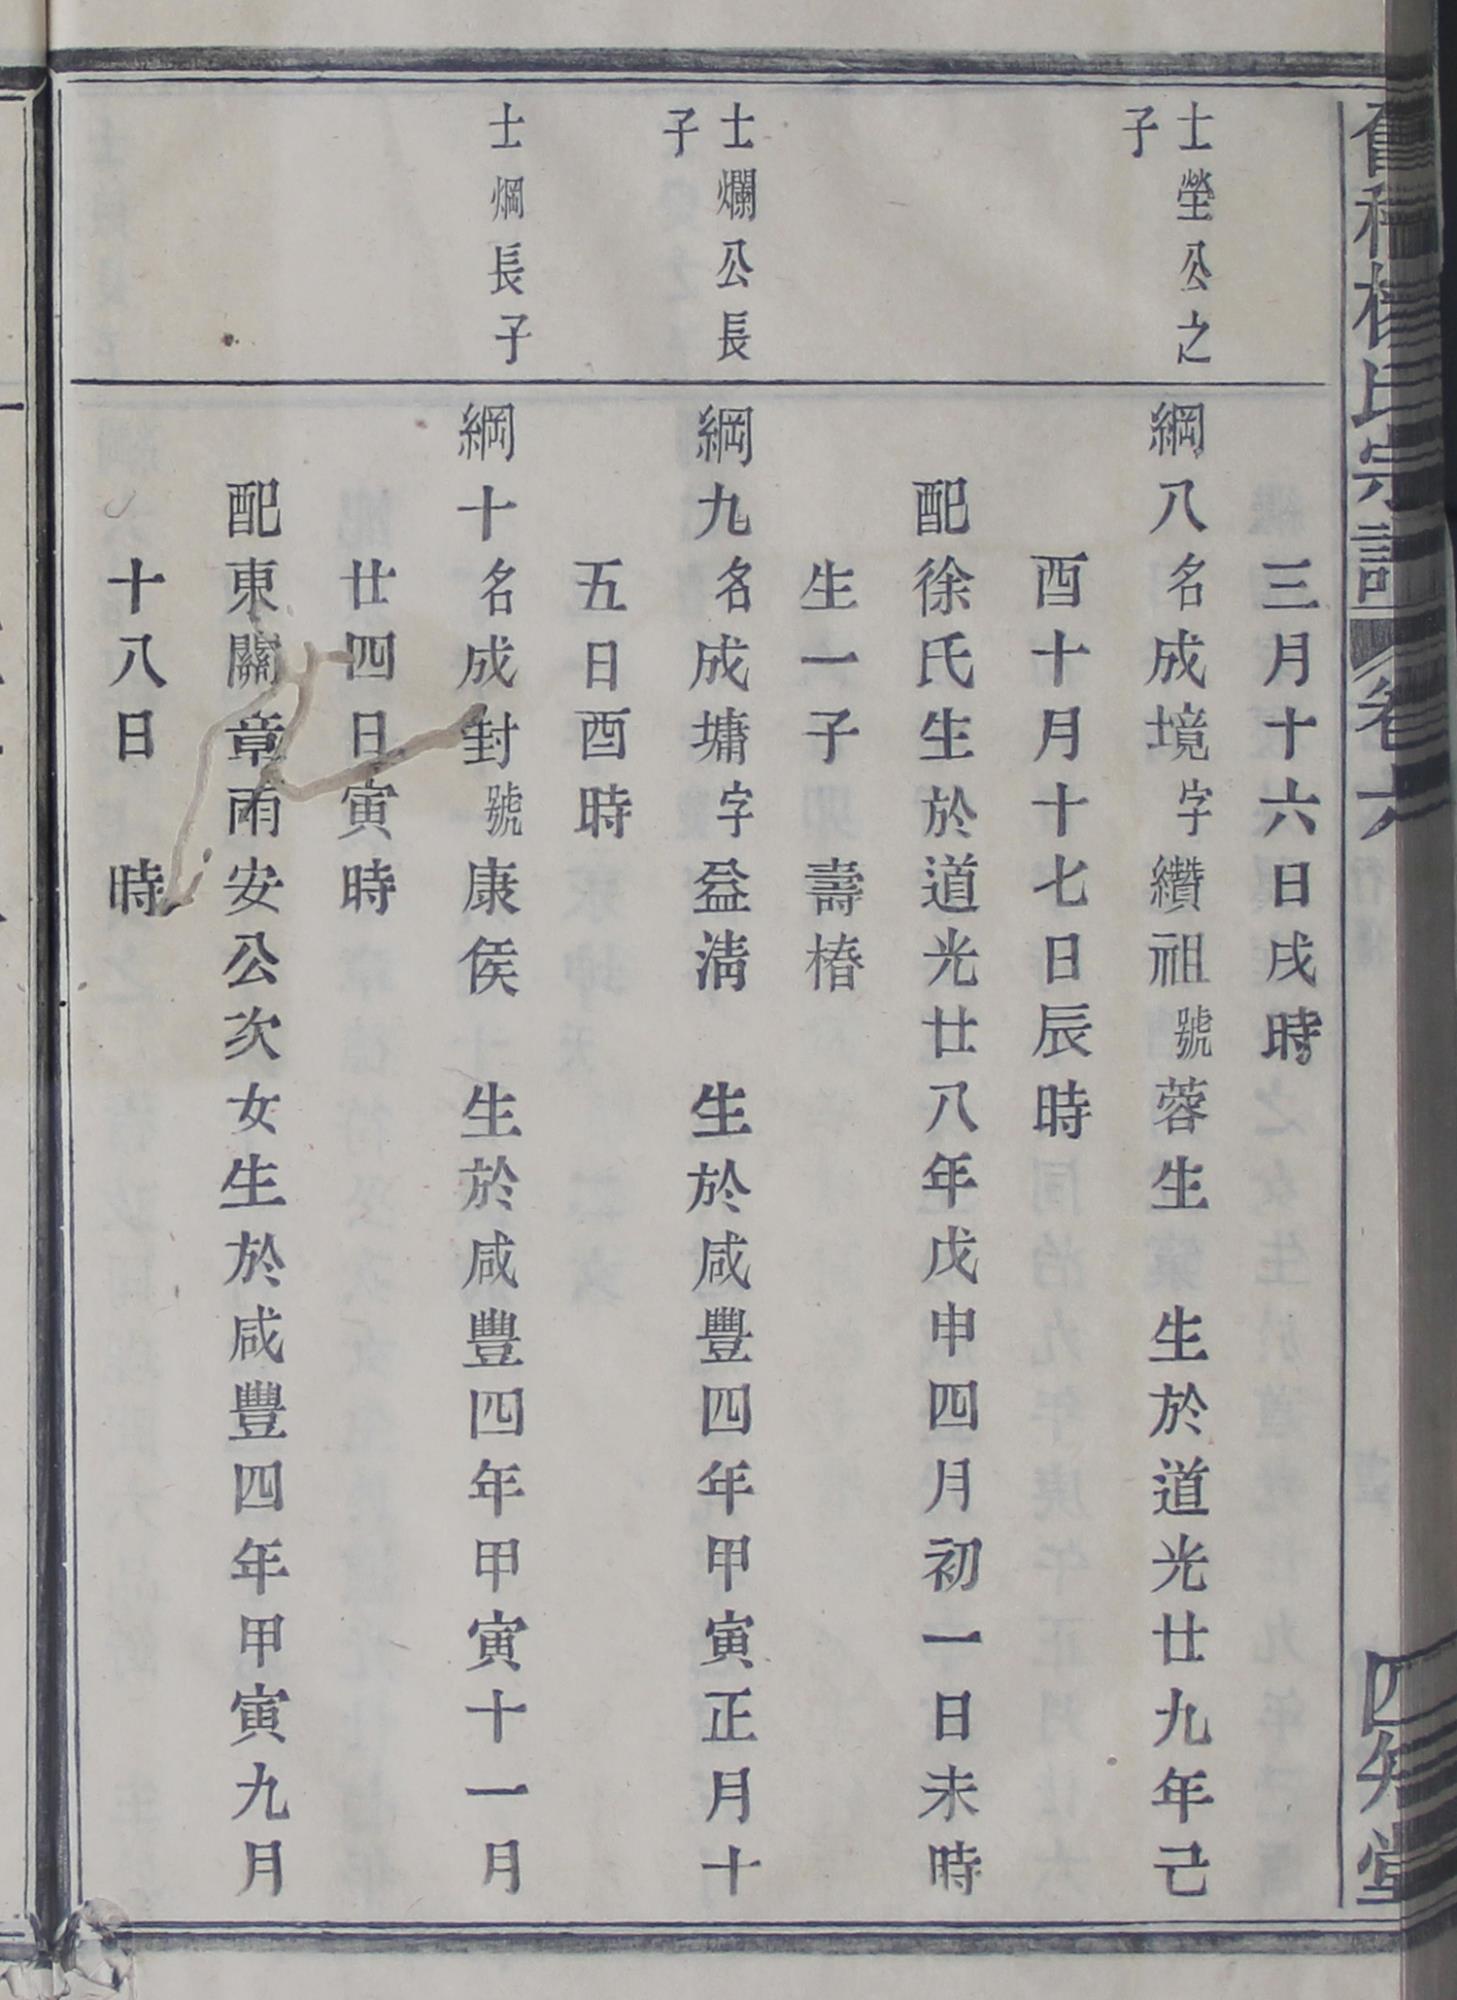 楊氏宗譜 卷六 四知堂
三月十六日戌時
士塋公之
子
綱八名成境字纘祖號蓉生 生於道光廿九年己
酉十月十七日辰時
配徐氏生於道光廿八年戊申四月初一日未時
生一子 壽椿
士爛公長
子
綱九名成墉字益淸 生於咸豐四年甲寅正月十
五日酉時
士焵長子
綱十名成封號康侯 生於咸豐四年甲寅十一月
廿四日寅時
配東關章雨安公次女生於咸豐四年甲寅九月
十八日 時